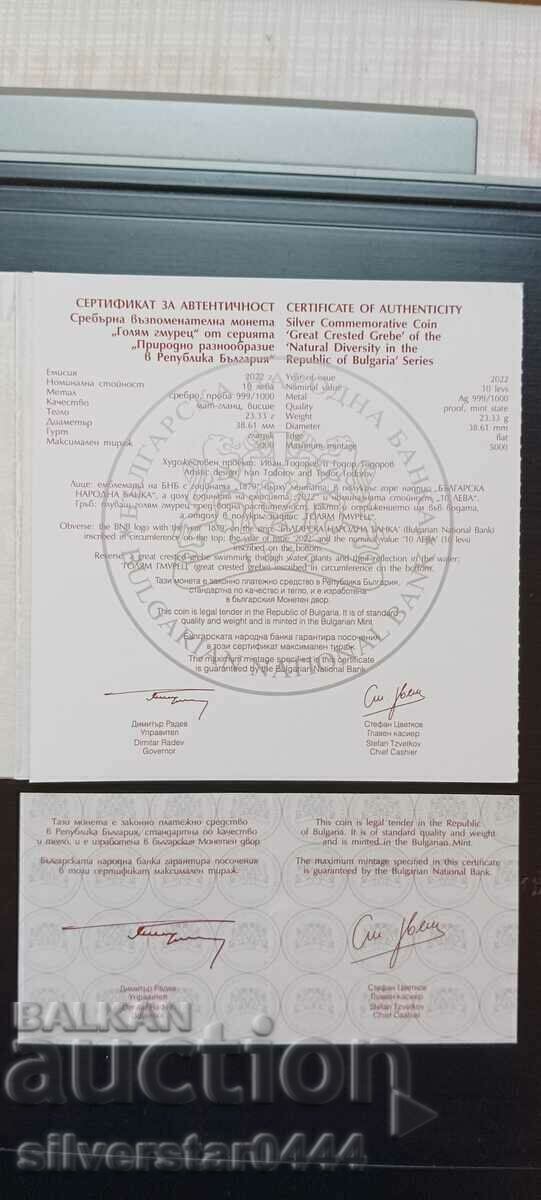 СЕРТИФИКАТ ЗА АВТЕНТИЧНОСТ
Сребърна възпоменателна монета
„Голям гмурец“ от серията
„Природно разнообразие
в Република България“
CERTIFICATE OF AUTHENTICITY
Silver Commemorative Coin
'Great Crested Grebe' of the
'Natural Diversity in the
Republic of Bulgaria' Series
Емисия 2022 г. Year of issue 2022
Номинална стойност 10 лева Nominal value 10 levs
Метал сребро, проба 999/1000 Metal Ag 999/1000
Качество мат-гланц, висше Quality proof, mint state
Тегло 23.33 г Weight 23.33 g
Диаметър 38.61 мм Diameter 38.61 mm
Гурт гладък Edge flat
Максимален тираж 5000 Maximum mintage 5000
Художествен проект: Иван Тодоров и Тодор Тодоров
Artistic design: Ivan Todorov and Todor Todorov
Лице: емблемата на БНБ с годината „1879“ върху лентата; в полукръг горе надпис „БЪЛГАРСКА
НАРОДНА БАНКА“, а долу годината на емисията „2022“ и номиналната стойност „10 ЛЕВА“.
Гръб: плуващ голям гмурец сред водна растителност, както и отражението им във водата,
а отдолу в полукръг надпис „ГОЛЯМ ГМУРЕЦ“.
Obverse: the BNB logo with the year '1879' on the stripe; 'БЪЛГАРСКА НАРОДНА БАНКА' (Bulgarian National Bank)
inscribed in circumference on the top; the year of issue '2022' and the nominal value '10 ЛЕВА' (10 levs)
inscribed on the bottom.
Reverse: a great crested grebe swimming through water plants and their reflection in the water;
'ГОЛЯМ ГМУРЕЦ' (great crested grebe) inscribed in circumference on the bottom.
Тази монета е законно платежно средство в Република България,
стандартна по качество и тегло, и е изработена
в българския Монетен двор.
This coin is legal tender in the Republic of Bulgaria. It is of standard
quality and weight and is minted in the Bulgarian Mint.
Българската народна банка гарантира посочения
в този сертификат максимален тираж.
The maximum mintage specified in this certificate
is guaranteed by the Bulgarian National Bank.
БЪЛГАРСКА НАРОДНА БАНКА
BULGARIAN NATIONAL BANK
Димитър Радев
Управител
Dimitar Radev
Governor
Стефан Цветков
Главен касиер
Stefan Tzvetkov
Chief Cashier
Тази монета е законно платежно средство
в Република България, стандартна по качество
и тегло, и е изработена в българския Монетен двор.
Българската народна банка гарантира посочения
в този сертификат максимален тираж.
This coin is legal tender in the Republic
of Bulgaria. It is of standard quality and weight
and is minted in the Bulgarian Mint.
The maximum mintage specified in this certificate
is guaranteed by the Bulgarian National Bank.
Димитър Радев
Управител
Dimitar Radev
Governor
Стефан Цветков
Главен касиер
Stefan Tzvetkov
Chief Cashier
BALKAN
auction
silverstar0444